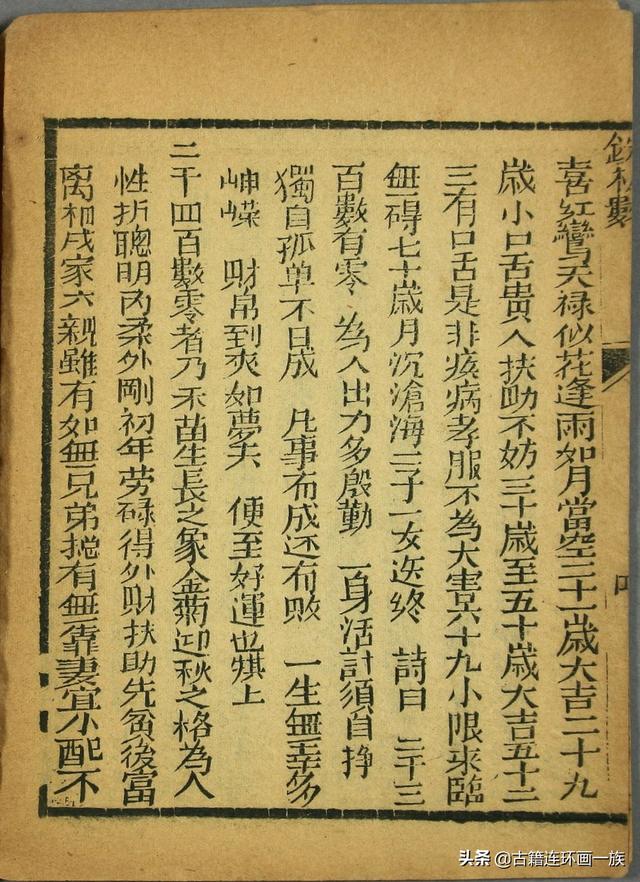 數
喜紅鸞与天禄似花逢雨如月當空二十一歲大吉二十九
歲小口舌貴人扶助不妨三十歲至五十歲大吉五十二
三有口舌是非疾病孝服不為大害六十九小限來臨
無碍七十歲月沉滄海二子一女送終 詩曰 二千三
百數有零 為人出力多殷勤 一身活計須自挣
獨自孤单不日成 凡事有成还有敗 一生無幸多
財帛到來如夢失 便至好運也 上
二千四百數零者乃禾苗生長之象金菊迎秋之格為人
性折聰明内柔外剛初年劳碌得外財扶助先貧後富
离祖成家六親雖有如無兄弟搃有無靠妻宜小配不
头条 @古籍连环画一族